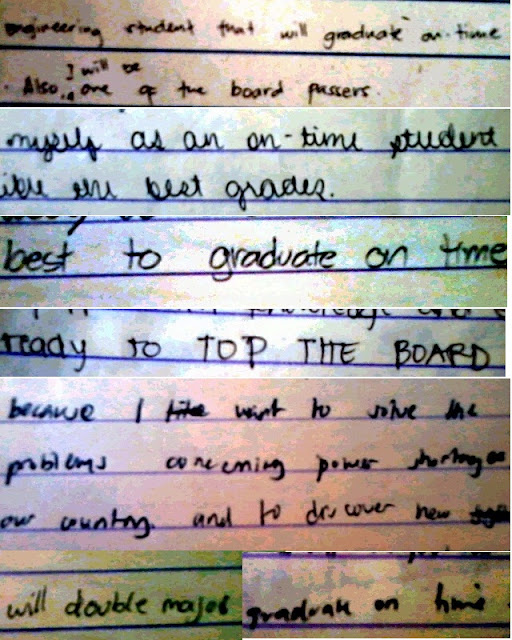 engineering student that will graduate on-time
I will be
Also, one of the board passers.
myself as an on-time student
the best grades.
best to graduate on time
ready to TOP THE BOARD
because I like want to solve the
problems concerning power shortages
our country. and to discover new
will double major
graduate on time